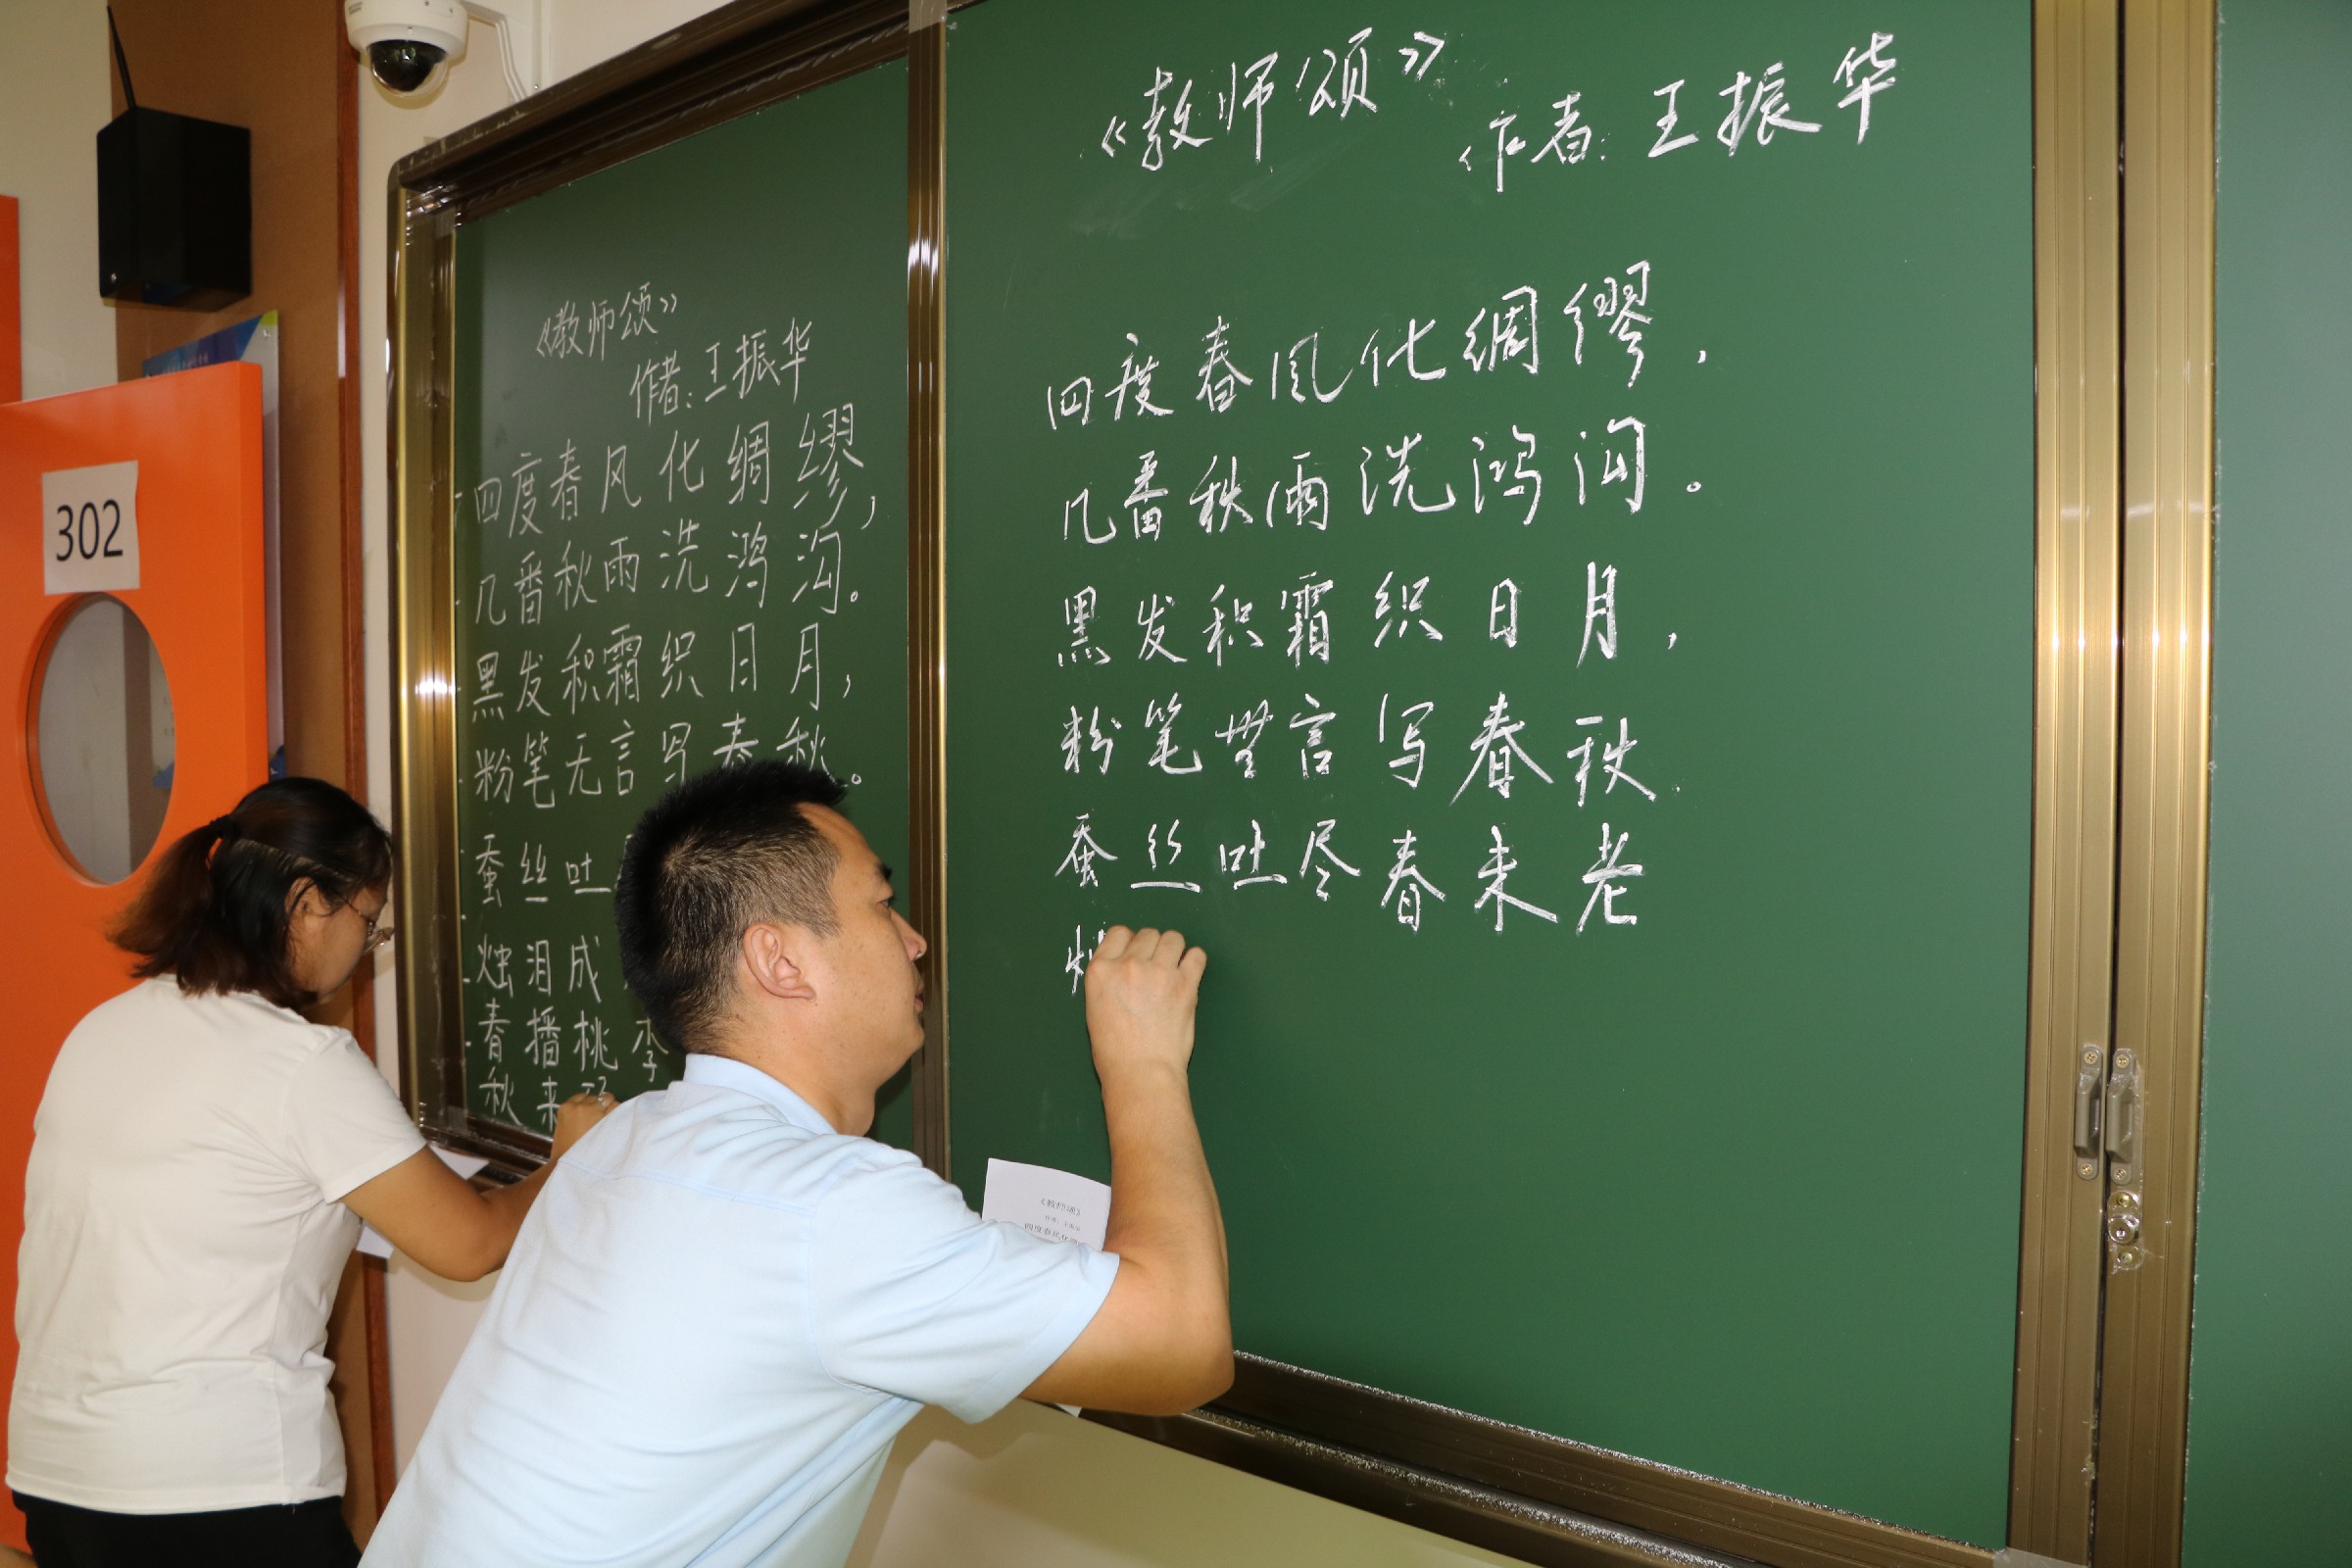 302
《教师颂》
作者:王振华
四度春风化绸缪,
几番秋雨洗鸿沟。
黑发积霜织日月,
粉笔无言写春秋。
蚕丝吐
烛泪成
春播桃李
秋来
《教师颂》
作者:王振华
四度春风化绸缪,
几番秋雨洗鸿沟。
黑发积霜织日月,
粉笔無言写春秋.
蚕丝吐尽春未老
《教师颂》
四度春风化绸